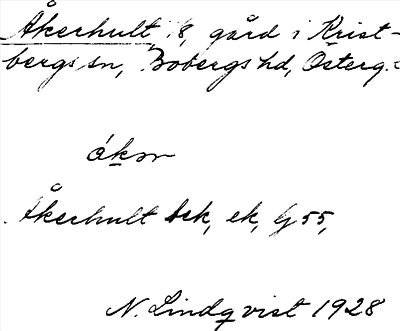 Åkerhult 8, gård i Krist-
bergs sn, Bobergs hd, Österg.
ókər
Åkerhult bek, ek, G 55,
N. Lindqvist 1928